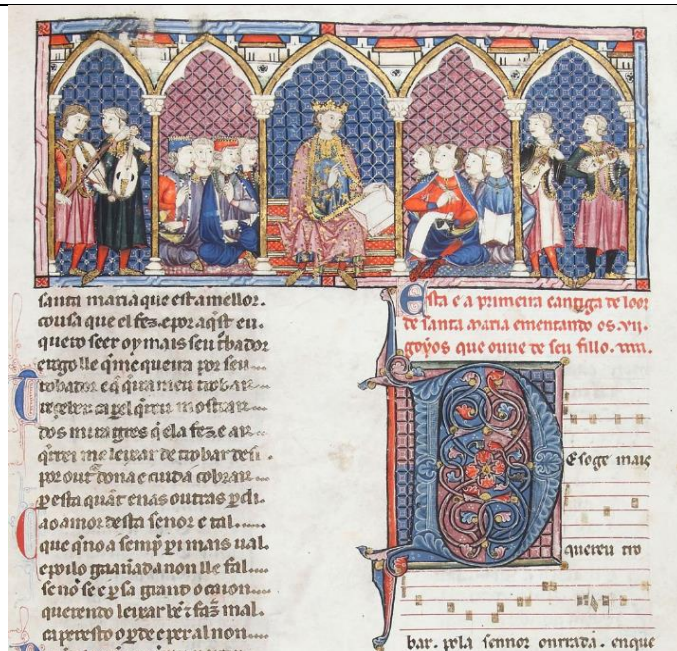 santa maria que est a mellor.
cousa que el fez. e por aqst eu.
quero seer oy mais seu trobador
e rogo lle q̃ me queira por seu
trobador e q̃ queira meu trobar
reçeber. ca per el q̃rreu mostrar
dos miragres q̃ ela fez. e ar
q̃rrei me leixar de trobar desi.
por out̃ dona e cuid a cobrar
p̱ esta quãt enas outras p̱di.
ca o amor desta sennor e tal
que q̃no a semp̃ p̱i mais ual.
e poilo gaannada non lle fal
se nõ se e p̱ sa grand ocaion.
querendo leixar bẽ ꞇ faz̃ mal.
ca per esto o p̱de e per al non
Esta e a primeira cantiga de loor
de santa maria ementando os .vii.
goyos que ouue de seu fillo.
Des oge mais
quereu tro
bar. pola sennor onrrada. en que